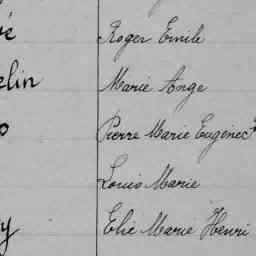 é Roger Emile
elin Marie Ange
o Pierre Marie Eugène
Louis Marie
y Elie Marie Henri